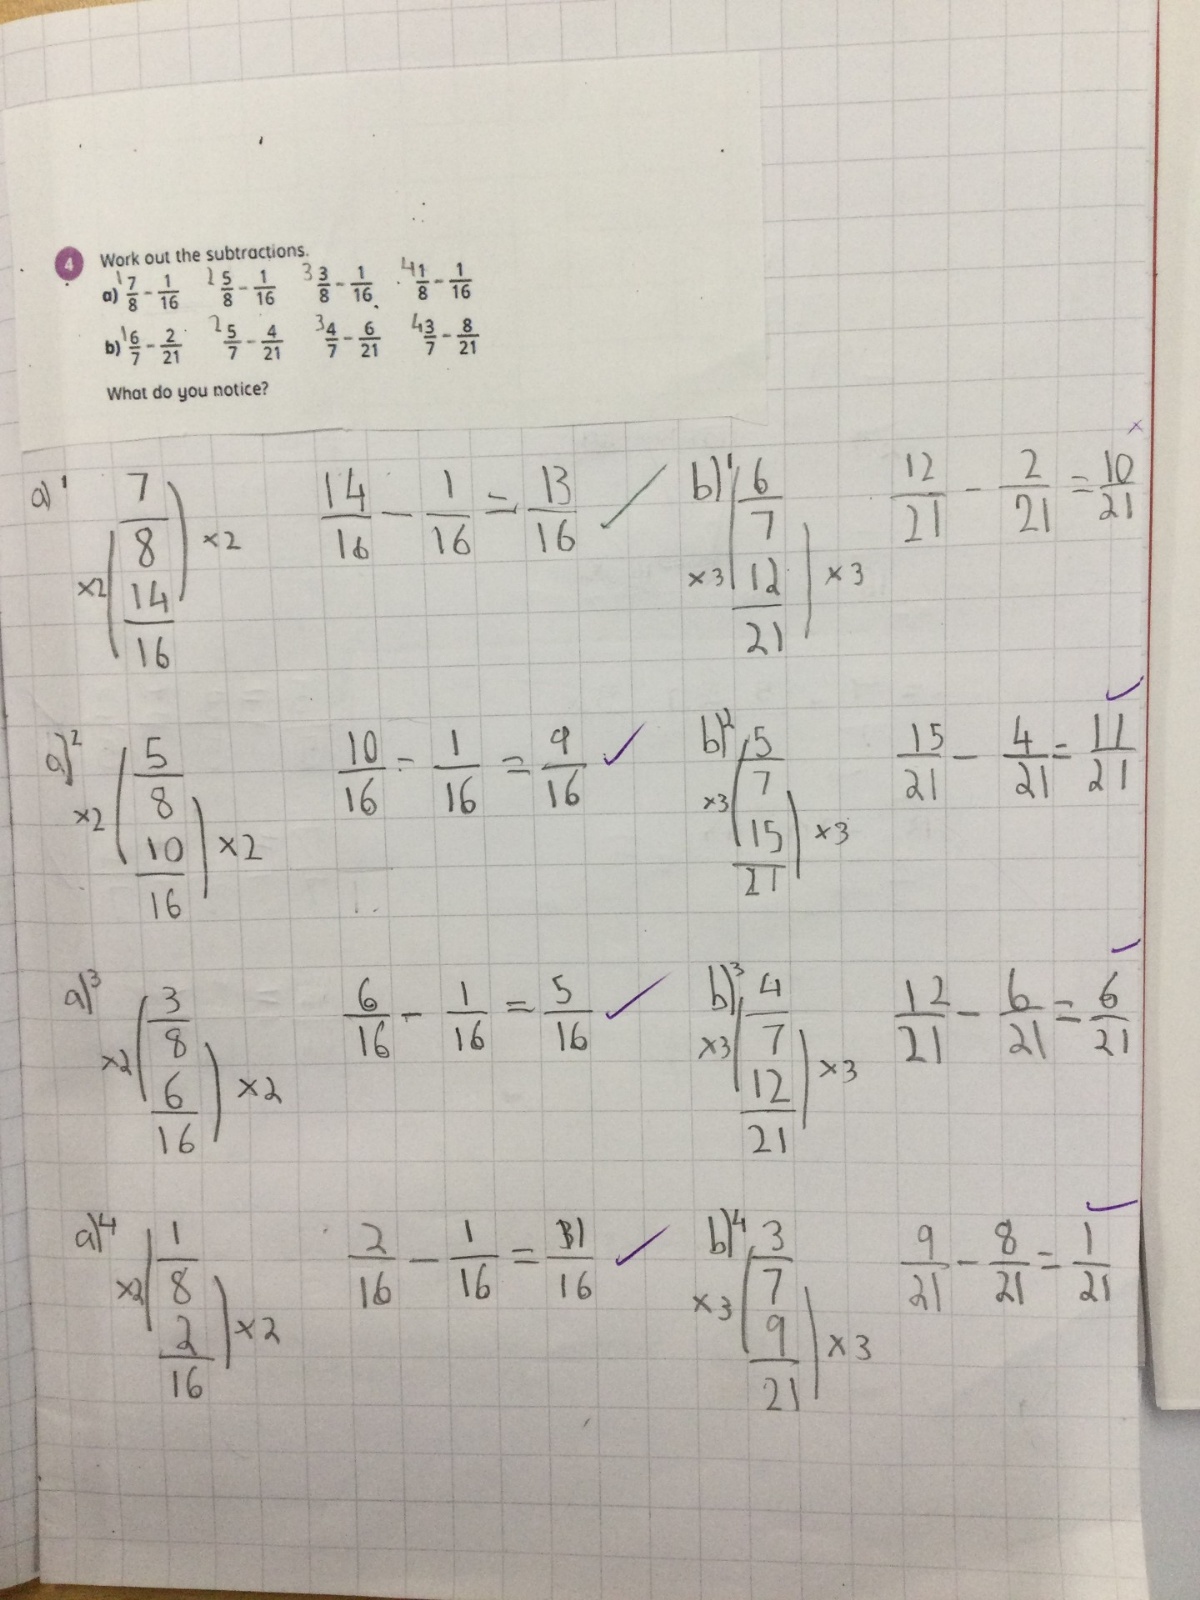 4 Work out the subtractions.
a) 1 7/8 - 1/16 2 5/8 - 1/16 3 3/8 - 1/16 4 1/8 - 1/16
b) 1 6/7 - 2/21 2 5/7 - 4/21 3 4/7 - 6/21 4 3/7 - 8/21
What do you notice?
a) 1 7/8 ×2 ×2 14/16
14/16 - 1/16 = 13/16 ✓
b) 1 6/7 ×3 ×3 12/21
12/21 - 2/21 = 10/21 ×
a) 2 5/8 ×2 ×2 10/16
10/16 - 1/16 = 9/16 ✓
b) 2 5/7 ×3 ×3 15/21
15/21 - 4/21 = 11/21 ✓
a) 3 3/8 ×2 ×2 6/16
6/16 - 1/16 = 5/16 ✓
b) 3 4/7 ×3 ×3 12/21
12/21 - 6/21 = 6/21 ✓
a) 4 1/8 ×2 ×2 2/16
2/16 - 1/16 = 1/16 ✓
b) 4 3/7 ×3 ×3 9/21
9/21 - 8/21 = 1/21 ✓